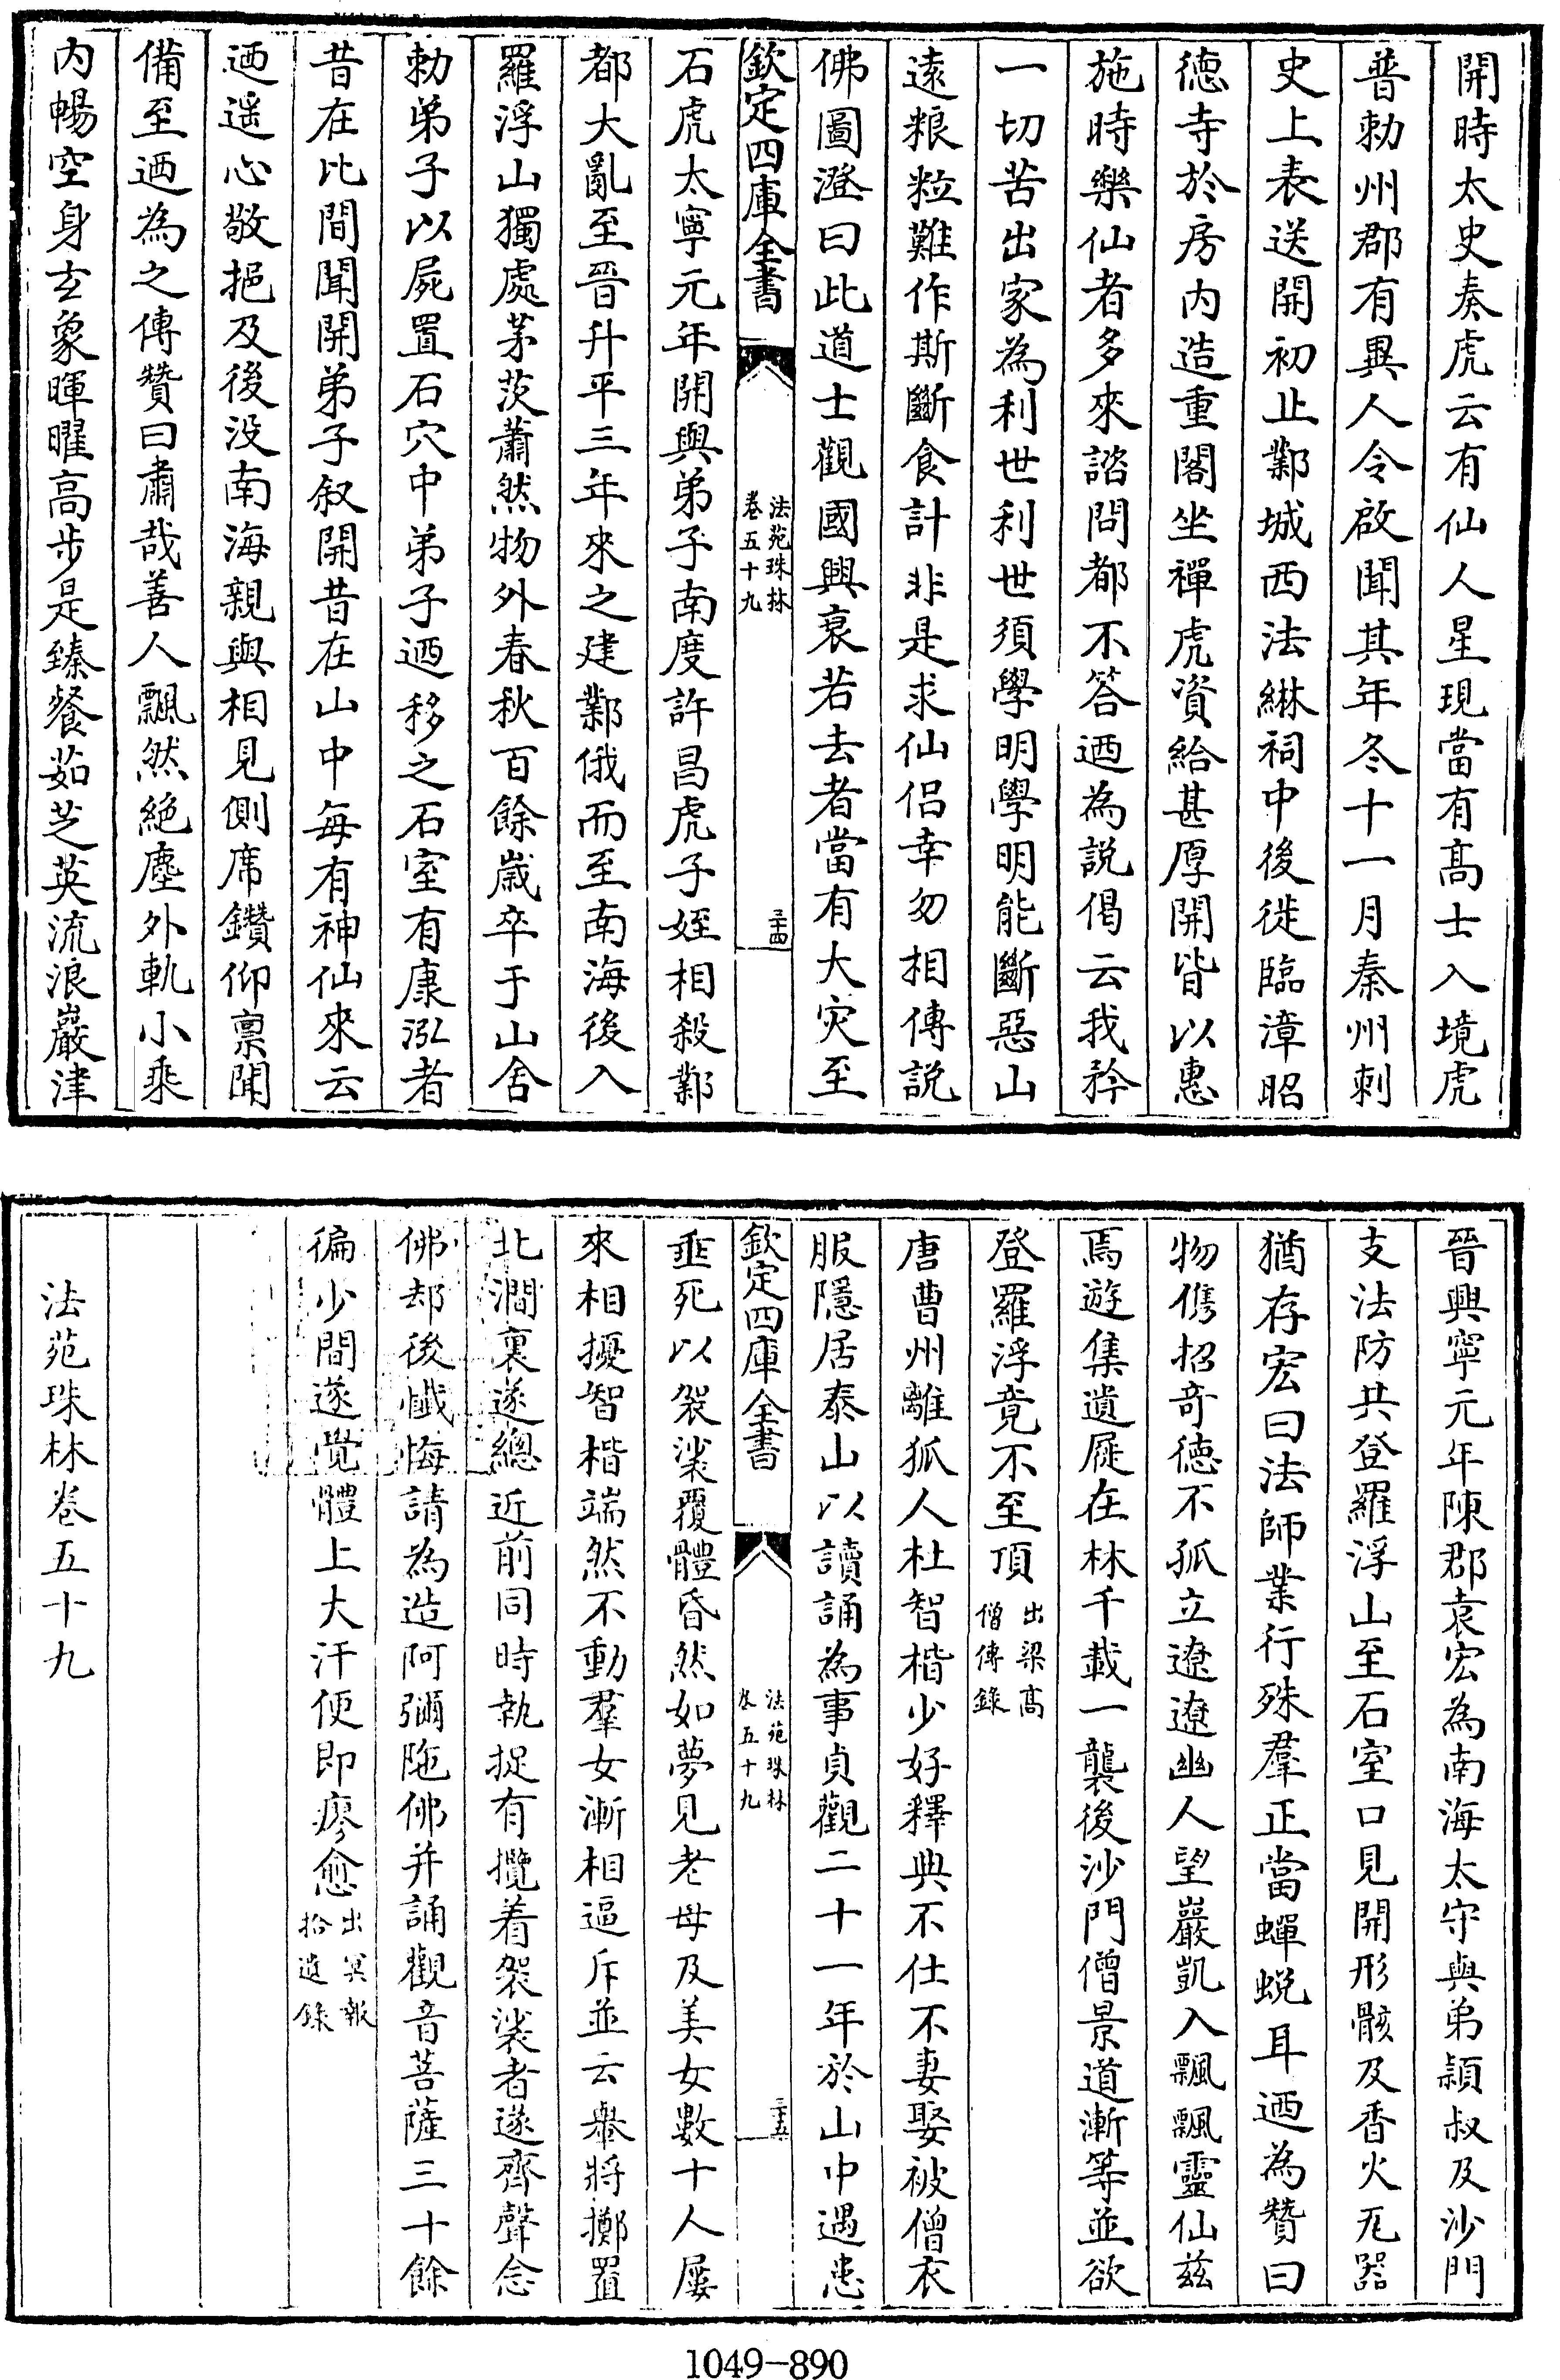 開時太史奏虎云有仙人星現當有髙士入境虎
普勅州郡有異人令啟聞其年冬十一月秦州刺
史上表送開初止鄴城西法綝祠中後徙臨漳昭
德寺於房内造重閣坐禪虎資給甚厚開皆以惠
施時樂仙者多來諮問都不答迺為說偈云我矜
一切苦出家為利世利世須學明學明能斷惡山
逺粮粒難作斯斷食計非是求仙侣幸勿相傳說
佛圖澄曰此道士觀國興衰若去者當有大灾至
欽定四庫全書
法苑珠林
卷五十九
三十四
石虎太寧元年開與弟子南度許昌虎子姪相殺鄴
都大亂至晉升平三年來之建鄴俄而至南海後入
羅浮山獨處茅茨蕭然物外春秋百餘嵗卒于山舍
勅弟子以屍置石穴中弟子迺移之石室有康泓者
昔在北間聞開弟子叙開昔在山中每有神仙來云
迺遥心敬挹及後没南海親與相見側席鑽仰禀聞
備至迺為之傳贊曰肅哉善人飄然絶塵外軌小乘
内暢空身玄象暉曜高步是臻餐茹芝英流浪巖津
晉興寧元年陳郡袁宏為南海太守與弟頴叔及沙門
支法防共登羅浮山至石室口見開形骸及香火瓦器
猶存宏曰法師業行殊羣正當蟬蜕耳迺為贊曰
物儁招竒德不孤立遼遼幽人望巖凱入飄飄靈仙兹
焉遊集遺屣在林千載一襲後沙門僧景道漸等並欲
登羅浮竟不至頂
出梁髙
僧傳錄
唐曹州離狐人杜智楷少好釋典不仕不妻娶被僧衣
服隱居泰山以讀誦為事貞觀二十一年於山中遇患
欽定四庫全書
法苑珠林
卷五十九
三十五
垂死以袈裟覆體昏然如夢見老母及美女數十人屢
來相擾智楷端然不動羣女漸相逼斥並云舉將擲置
北澗裏遂總近前同時執捉有攬着袈裟者遂齊聲念
佛却後懴悔請為造阿彌陁佛并誦觀音菩薩三十餘
徧少間遂覺體上大汗便即瘳愈
出冥報
拾遺錄
法苑珠林卷五十九
1049-890